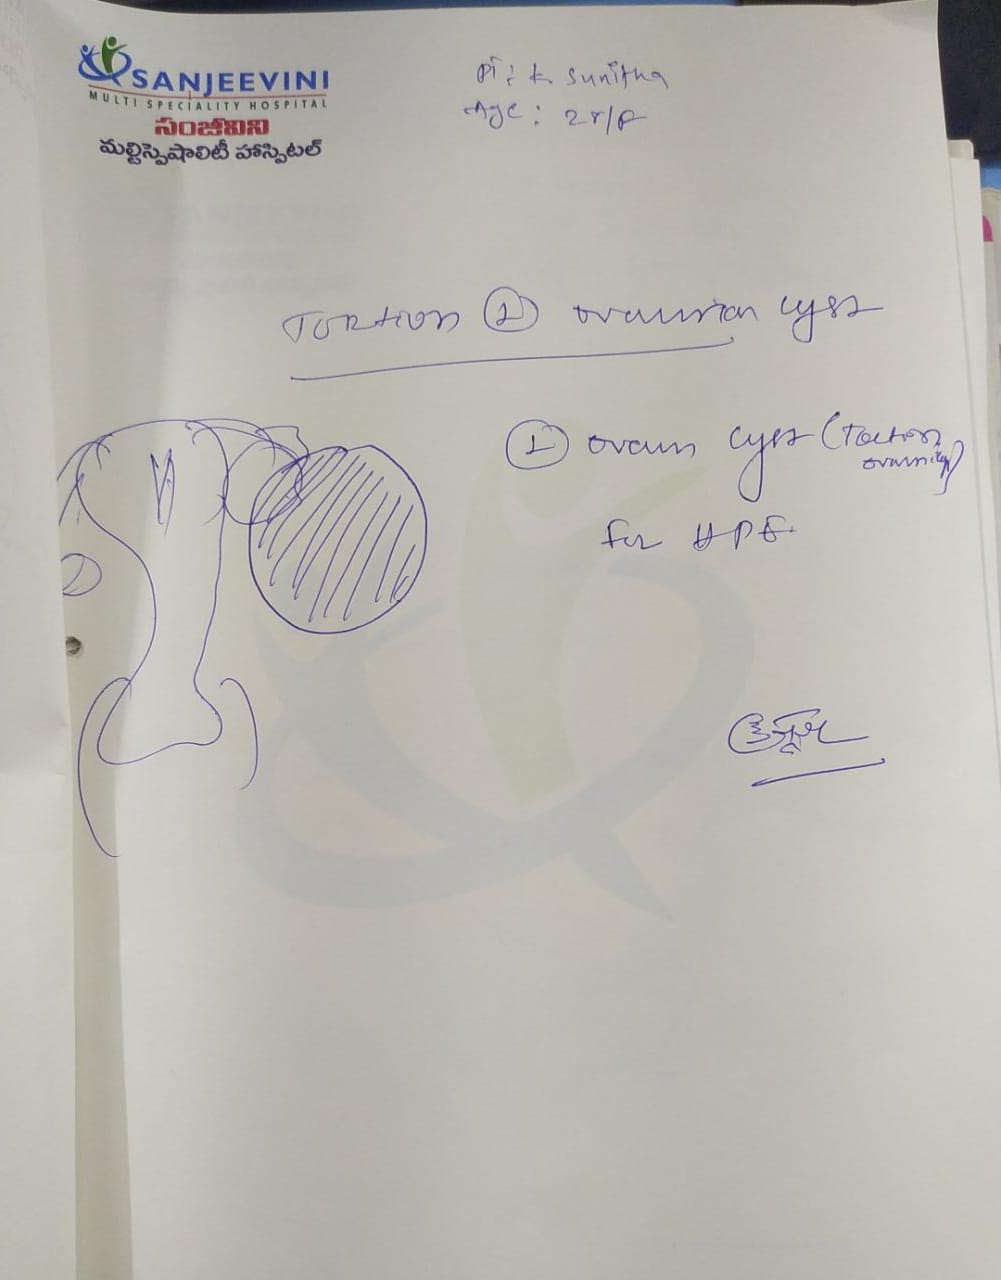 SANJEEVINI
MULTI SPECIALITY HOSPITAL
సంజీవిని
మల్టిస్పెషాలిటీ హాస్పిటల్
Pt : K Sunitha
Age : 28/F
Tortion Ⓛ ovarian cyst
Ⓛ ovarian cyst (Tortion
for HPE